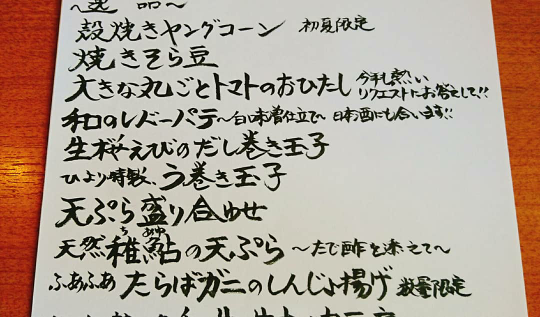 〜逸品〜
殻焼きヤングコーン 初夏限定
焼きそら豆
大きな丸ごとトマトのおひたし 今年も熱いリクエストにお答えして!!
和のレバーパテ〜白味噌仕立て〜 日本酒にも合います!!
生桜えびのだし巻き玉子
ひより特製、う巻き玉子
天ぷら盛り合わせ
天然稚鮎の天ぷら 〜たで酢を添えて〜
ふあふあ たらばガニのしんじょ揚げ 数量限定